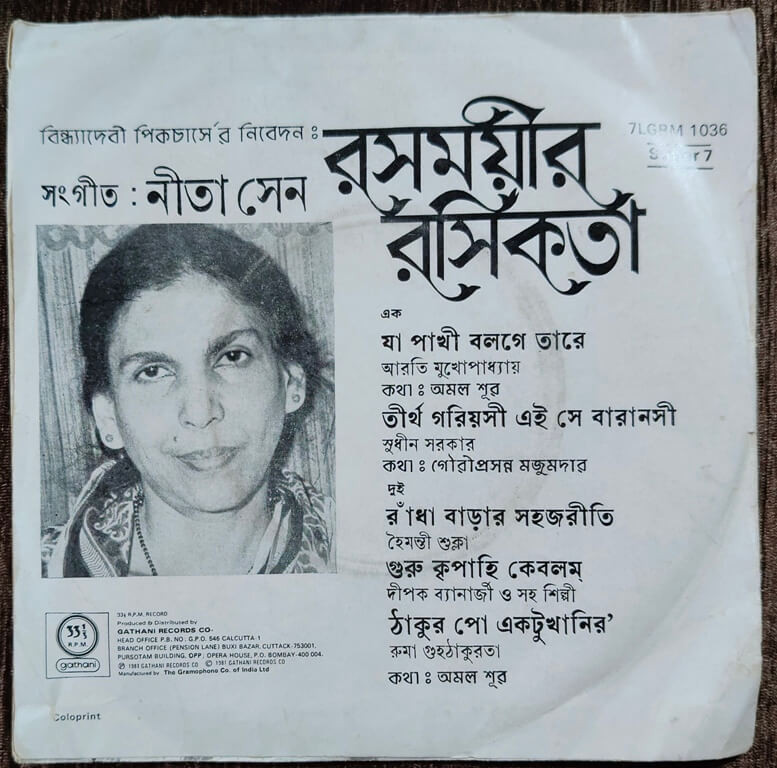 বিন্ধ্যাদেবী পিকচার্সের নিবেদন ঃ
রসময়ীর
রসিকতা
7LGRM 1036
Super 7
সংগীত : নীতা সেন
এক
যা পাখী বলগে তারে
আরতি মুখোপাধ্যায়
কথা ঃ অমল শূর
তীর্থ গরিয়সী এই সে বারানসী
সুধীন সরকার
কথা ঃ গৌরীপ্রসন্ন মজুমদার
দুই
রাঁধা বাড়ার সহজরীতি
হৈমন্তী শুক্লা
গুরু কৃপাহি কেবলম্
দীপক ব্যানার্জী ও সহ শিল্পী
ঠাকুর পো একটুখানির’
রুমা গুহঠাকুরতা
কথা ঃ অমল শূর
33⅓
R.P.M.
gathani
33⅓ R.P.M. RECORD
Produced & Distributed by
GATHANI RECORDS CO-
HEAD OFFICE P.B. NO. G.P.O. 546 CALCUTTA-1
BRANCH OFFICE (PENSION LANE) BUXI BAZAR, CUTTACK-753001.
PURSOTAM BUILDING, OPP, OPERA HOUSE, P.O. BOMBAY-400 004.
Ⓟ 1981 GATHANI RECORDS CO © 1981 GATHANI RECORDS CO
Manufactured by The Gramophone Co. of India Ltd
Coloprint